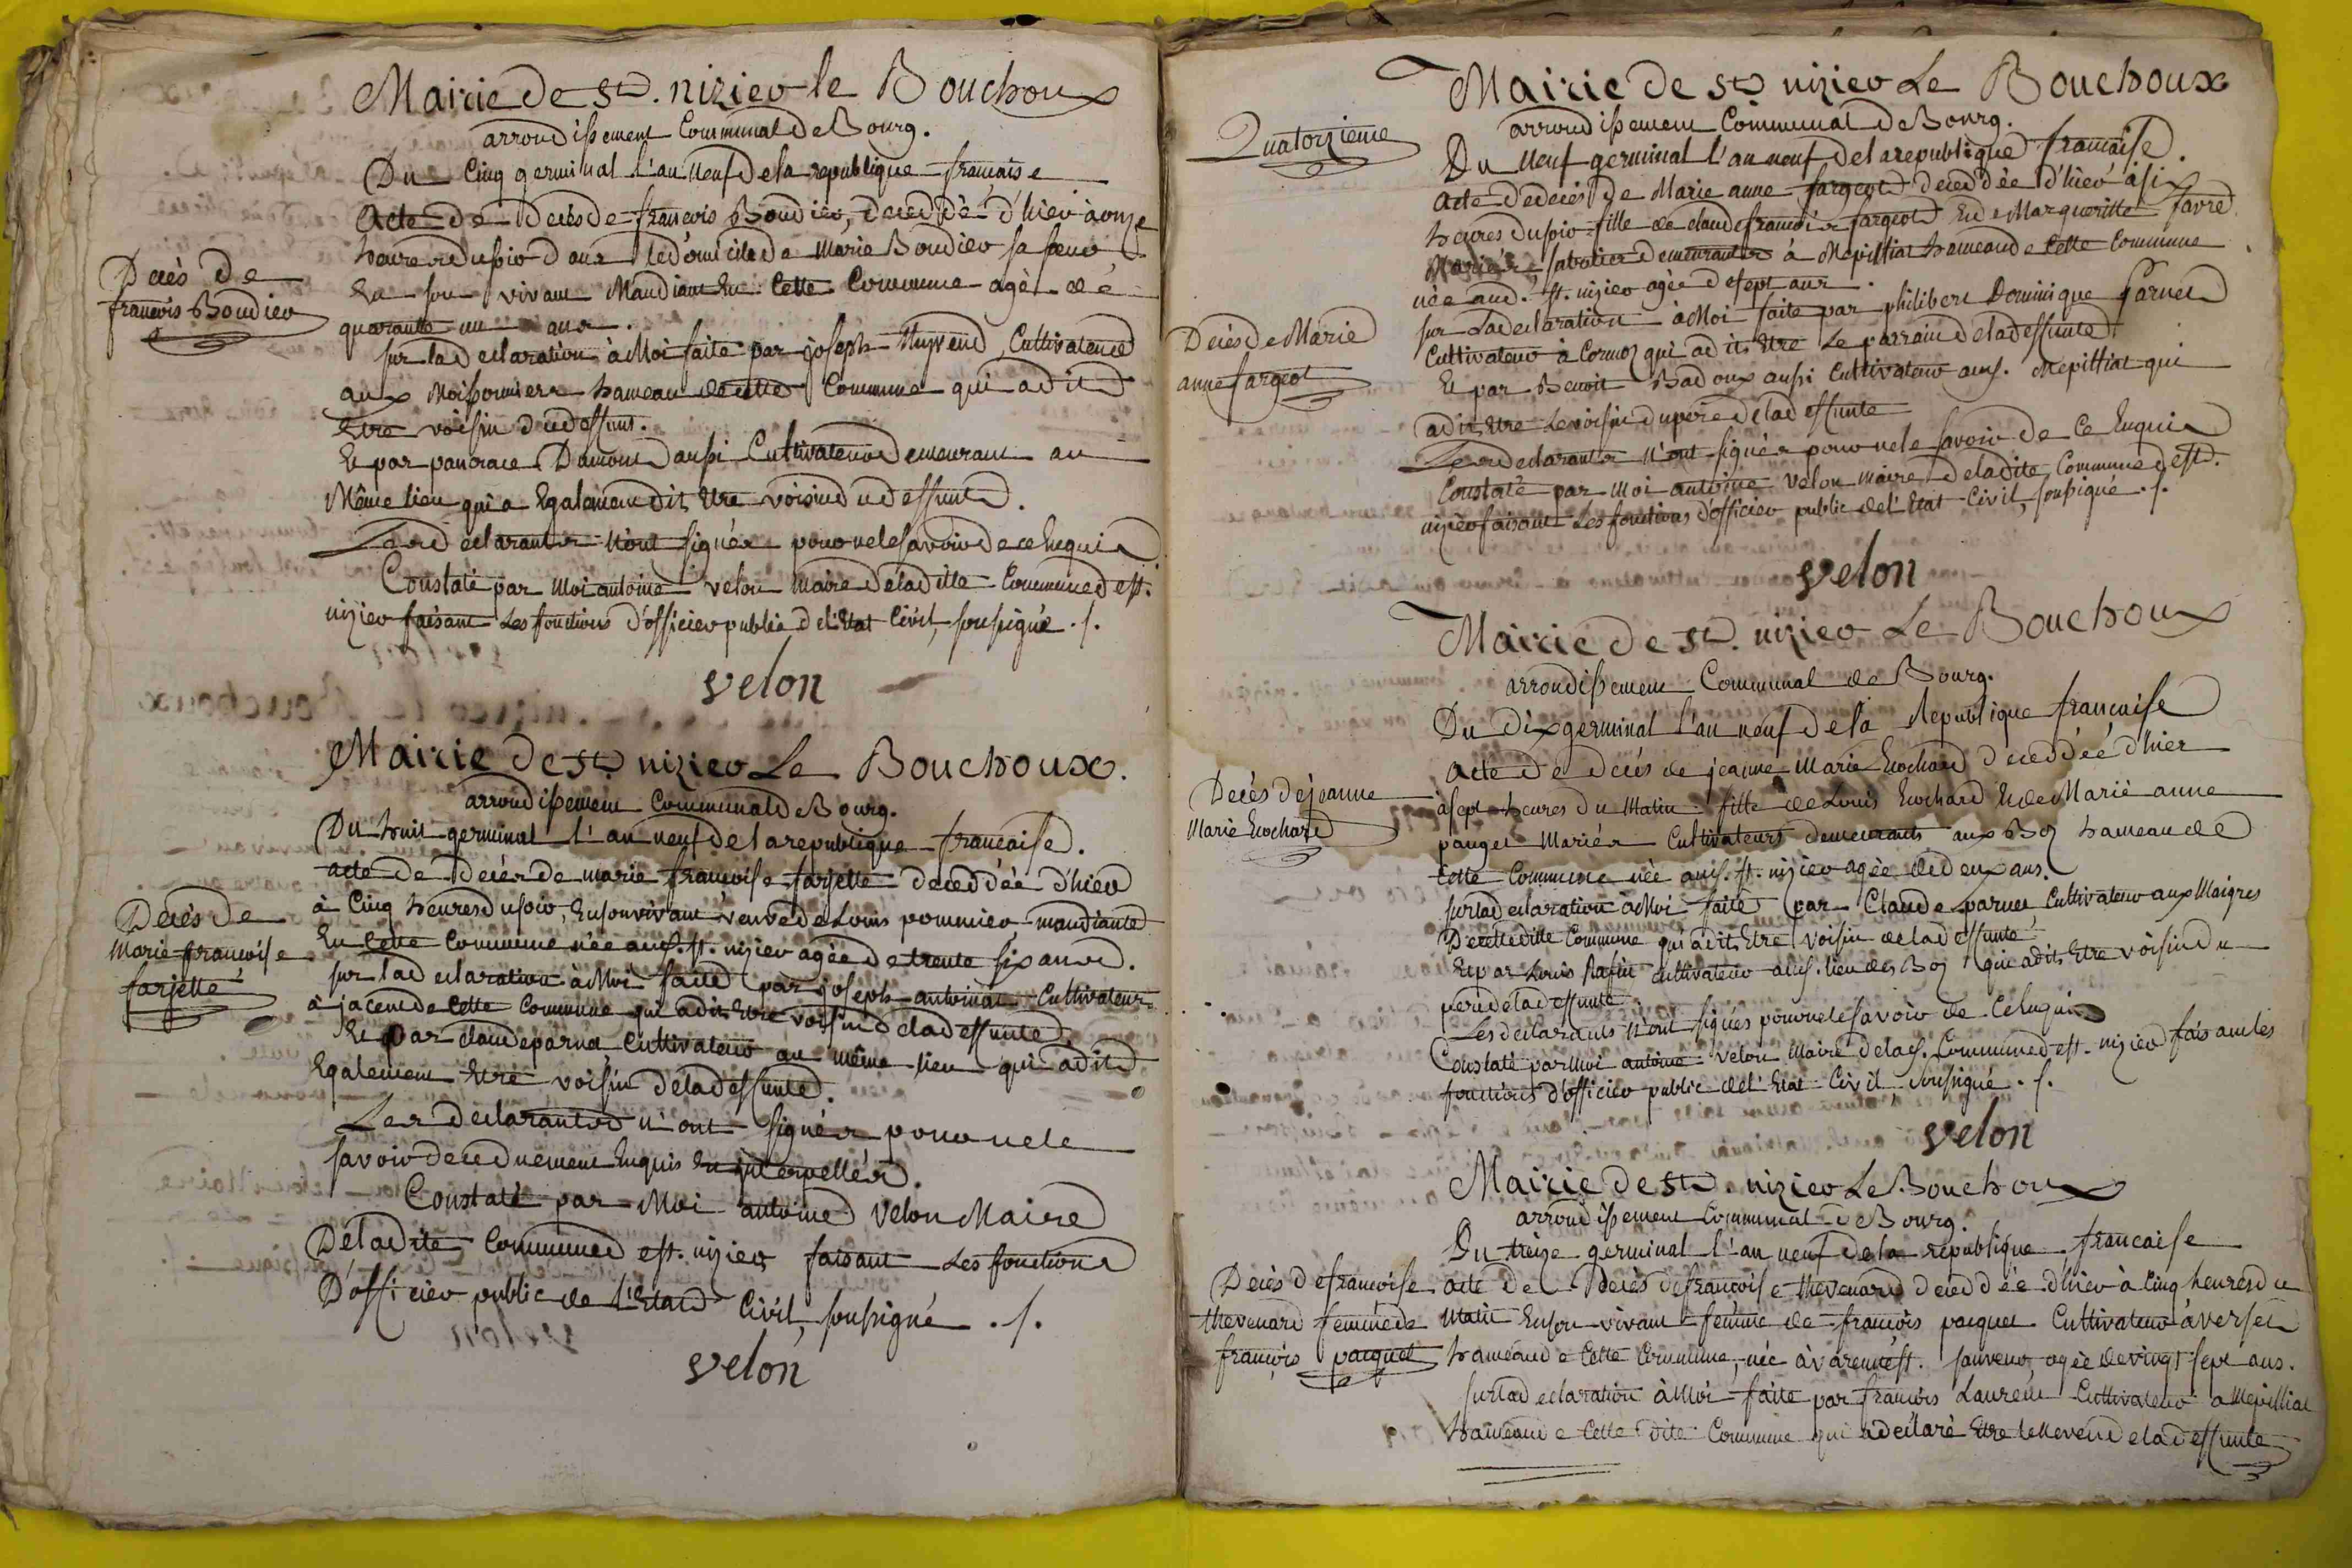 Mairie de St. nizier le Bouchoux
arrondissement Communal de Bourg.
Du Cinq germinal l'an neuf de la republique francaise
Acte de Decès de francois Boudier, deceddé d'hier à onze
heures du soir dans le domicile de Marie Boudier sa soeur,
Decès de
francois Boudier
En son vivant Mandiant En Cette Commune agé de
quarante un ans.
sur la declaration à Moi faite par joseph Cultivateur
aux Moissonniers hameau de cette Commune qui a dit
Etre voisin du deffunt.
Et par pancrace Damont aussi Cultivateur demeurant au
Même lieu qui a Egalement dit Etre voisin du deffunt.
Les declarants n'ont signés pour ne le savoir de ce Enquis
Constaté par Moi antoine velon Maire de ladite Commune de st.
nizier faisant Les fonctions d'officier public de l'Etat Civil, soussigné ./.
velon
Mairie de St. nizier Le Bouchoux.
arrondissement Communal de Bourg.
Du huit germinal l'an neuf de la republique francaise.
acte de decès de marie francoise farjette deceddée d'hier
à Cinq heures du soir, En son vivant veuve de Louis pommier, mandiante
Decès de
Marie francoise
farjette
En Cette Commune née aud. st. nizier agée de trente six ans.
sur la declaration à Moi faite par joseph antoinat Cultivateur
à jacem de Cette Commune qui a dit Etre voisin de la deffunte.
Et par claude parna Cultivateur au même lieu qui a dit
Egalement Etre voisin de la deffunte.
Les declarants n'ont signés pour ne le
savoir de ce duement Enquis En interpellés.
Constaté par Moi antoine velon Maire
De ladite Commune de st. nizier faisant Les fonctions
D'officier public de l'Etat Civil, soussigné ./.
velon
Quatorzieme
Mairie de St. nizier Le Bouchoux
arrondissement Communal de Bourg.
Du Neuf germinal l'an neuf de la republique francaise.
Acte de decès de Marie anne fargeot decedée d'hier à six
heures du soir fille de claude francois fargeot Et de Margueritte favre
Mariés sabotier demeurants à Mepilliat hameau de Cette Commune
née aud. st. nizier agée de sept ans.
Decès de Marie
anne fargeot
sur La declaration à Moi faite par philibert Dominique Garnet
Cultivateur à Cormoz qui a dit Etre Le parrain de la deffunte.
Et par Benoit Badoux aussi Cultivateur aus. Mepilliat qui
a dit Etre Le voisin du pere de la deffunte
Les declarants n'ont signés pour ne le savoir de Ce Enquis
Constaté par Moi antoine velon maire de ladite Commune de st.
nizier faisant Les fonctions d'officier public de l'Etat Civil, soussigné ./.
velon
Mairie de St. nizier Le Bouchoux
arrondissement Communal de Bourg.
Du dix germinal l'an neuf de la Republique francaise
Acte de decès de jeanne Marie Enochard decedée d'hier
Decès de jeanne
Marie Enochard
à sept heures du Matin fille de Louis Enochard Et de Marie anne
pauget Mariés Cultivateurs demeurants aux Boz hameau de
Cette Commune née aud. st. nizier agée de deux ans.
sur la declaration à Moi faite par Claude parna Cultivateur aux Maigres
De cette ditte Commune qui a dit Etre voisin de la deffunte
Et par Louis Rafin Cultivateur aus. lieu des Boz qui a dit Etre voisin du
pere de la deffunte
Les declarants n'ont signés pour ne le savoir de Ce Enquis
Constaté par Moi antoine velon Maire de lad. Commune de st. nizier faisant les
fonctions d'officier public de l'Etat Civil soussigné ./.
velon
Mairie de St. nizier Le Bouchoux
arrondissement Communal de Bourg.
Du treize germinal l'an neuf de la republique francaise
Decès de francoise
thevenard femme de
francois pacquet
acte de Decès de francoise thevenard decedée d'hier à Cinq heures du
Matin En son vivant femme de francois pacquet Cultivateur à verset
hameau de Cette Commune, née à varenne st. sauveur, agée de vingt sept ans.
sur la declaration à Moi faite par francois Laurent Cultivateur a Mepilliat
hameau de Cette dite Commune qui a declaré Etre le Neveu de la deffunte